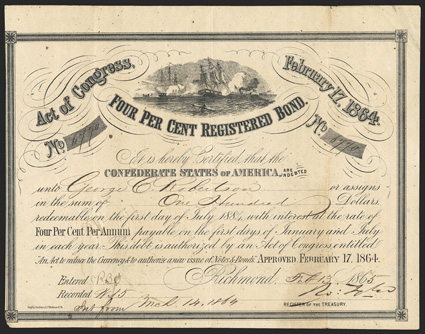 Act of Congress, February 17, 1864.
Four Per Cent Registered Bond.
No No
It is hereby Certified, that the
CONFEDERATE STATES OF AMERICA, ARE INDEBTED
unto George C Robertson or assigns
in the sum of One Hundred Dollars
redeemable on the first day of July 1884, with interest at the rate of
Four Per Cent Per Annum payable on the first days of January and July
in each year. This debt is authorized by an Act of Congress entitled
An Act to reduce the Currency & to authorize a new issue of Notes & Bonds APPROVED FEBRUARY 17, 1864.
Richmond Feb 13 1865
Entered
Recorded
Int from 14, 1864
REGISTER OF THE TREASURY.